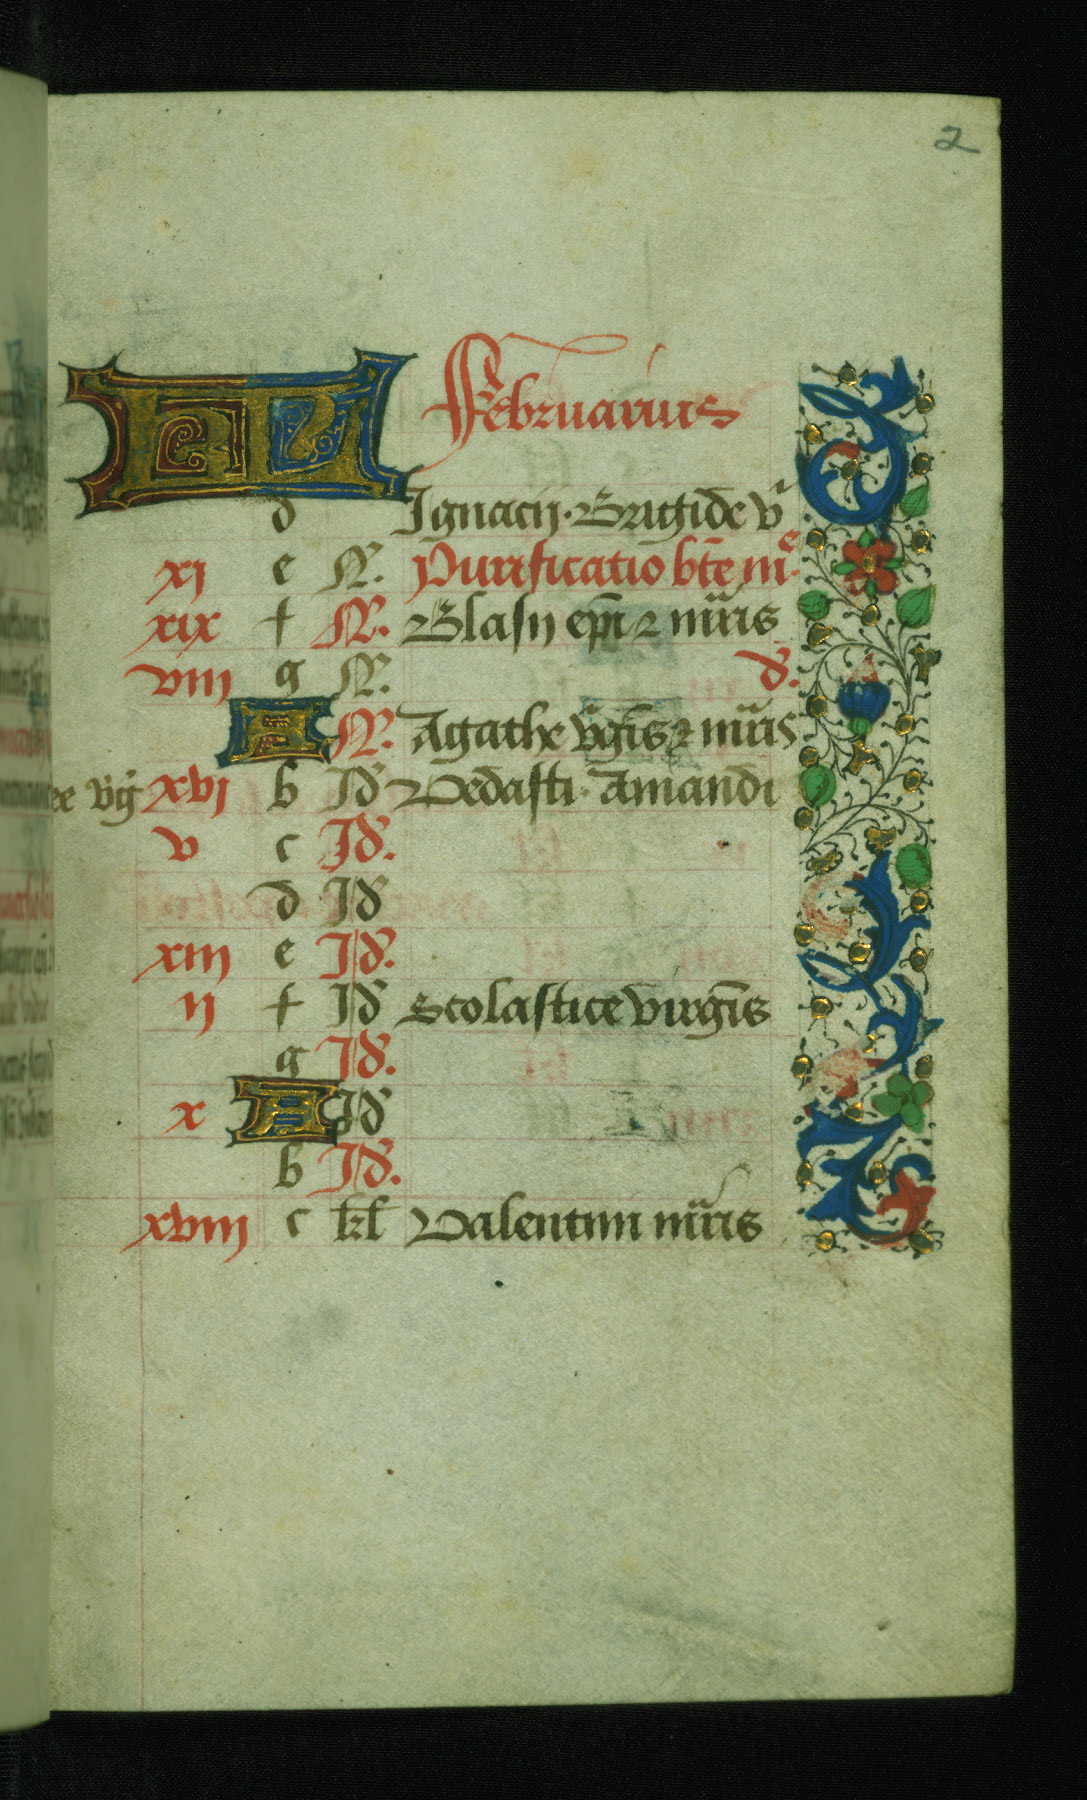 2
KL Februarius
d Ignacij · Brigide v̄
xj e N. Purificatio bte̅ me
xix f N. Blasij epi̅ ⁊ mr̅is
viij g N. d.
A N. Agathe vg̅is ⁊ mr̅is
xvj b Id Vedasti · Amandi
v c Id.
d Id
xiij e Id.
ij f Id Scolastice virgīs
g Id.
x A Id
b Id.
xviij c kl Valentini mr̅is